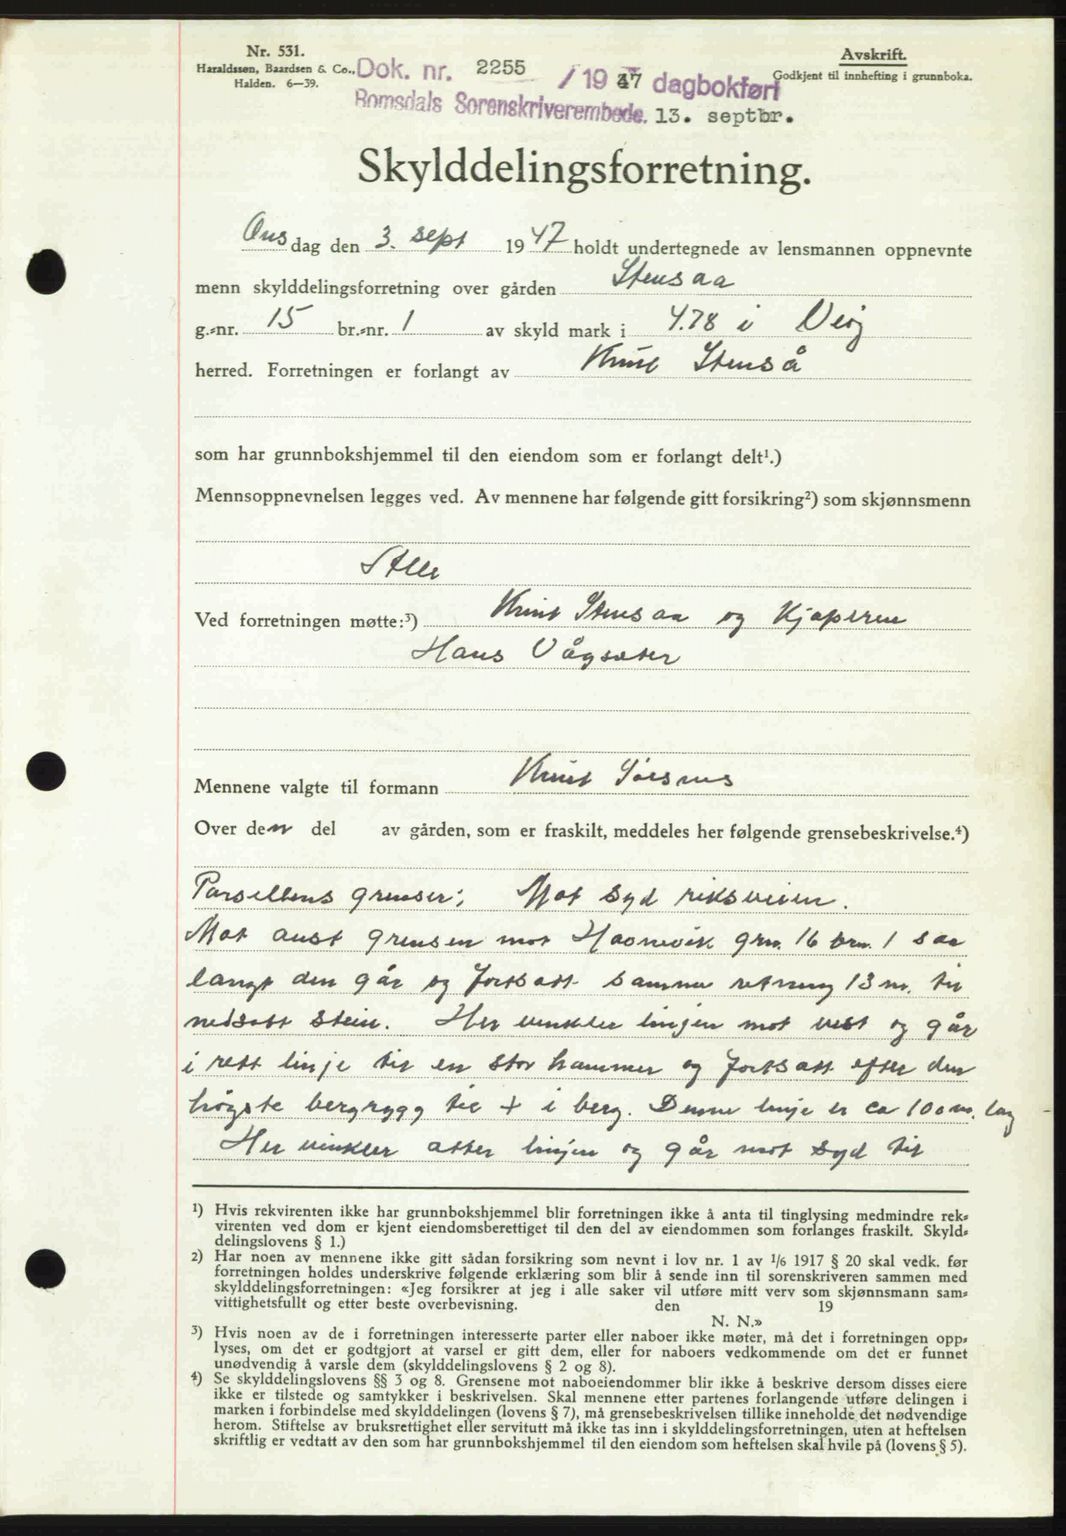 Nr. 531.
Haraldssen, Baardsen & Co.,
Halden. 6—39.
Dok. nr. 2255 / 19 47 dagbokført
Romsdals Sorenskriverembede. 13. septbr.
Avskrift.
Godkjent til innhefting i grunnboka.
Skylddelingsforretning.
Onsdag den 3. sept 1947 holdt undertegnede av lensmannen oppnevnte
menn skylddelingsforretning over gården Stensaa
g.-nr. 15 br.-nr. 1 av skyld mark i 4.78 i Veøy
herred. Forretningen er forlangt av Knut Stenså
som har grunnbokshjemmel til den eiendom som er forlangt delt¹.)
Mennsoppnevnelsen legges ved. Av mennene har følgende gitt forsikring²) som skjønnsmenn
Alle
Ved forretningen møtte:³) Knut Stensaa og Kjøperen
Hans Vågsæter
Mennene valgte til formann Knut Sørsnes
Over den del av gården, som er fraskilt, meddeles her følgende grensebeskrivelse.⁴)
Parsellens grenser; Mot syd riksveien.
Mot aust grensen mot Havnevik grn. 16 brn. 1 saa
langt den går og fortsatt samme retning 13 m. til
nedsatt stein. Her vinkler linjen mot vest og går
i rett linje til en stor hammer og fortsatt efter den
høgste bergrygg til + i berg. Denne linje er ca 100 m. lang
Her vinkler atter linjen og går mot syd til
¹) Hvis rekvirenten ikke har grunnbokshjemmel blir forretningen ikke å anta til tinglysing medmindre rek-
virenten ved dom er kjent eiendomsberettiget til den del av eiendommen som forlanges fraskilt. Skyld-
delingslovens § 1.)
²) Har noen av mennene ikke gitt sådan forsikring som nevnt i lov nr. 1 av ¹/₆ 1917 § 20 skal vedk. før
forretningen holdes underskrive følgende erklæring som blir å sende inn til sorenskriveren sammen med
skylddelingsforretningen: «Jeg forsikrer at jeg i alle saker vil utføre mitt verv som skjønnsmann sam-
vittighetsfullt og etter beste overbevisning. den 19
N. N.»
³) Hvis noen av de i forretningen interesserte parter eller naboer ikke møter, må det i forretningen opp-
lyses, om det er godtgjort at varsel er gitt dem, eller for naboers vedkommende om det er funnet
unødvendig å varsle dem (skylddelingslovens § 2 og 8).
⁴) Se skylddelingslovens §§ 3 og 8. Grensene mot naboeiendommer blir ikke å beskrive dersom disses eiere
ikke er tilstede og samtykker i beskrivelsen. Skal mennene etter partenes forlangende utføre delingen i
marken i forbindelse med skylddelingen (lovens § 7), må grensebeskrivelsen tillike inneholde det nødvendige
herom. Stiftelse av bruksrettighet eller servitutt må ikke tas inn i skylddelingsforretningen, uten at heftelsen
skriftlig er vedtatt av den som har grunnbokshjemmel til den eiendom som heftelsen skal hvile på (lovens § 5).